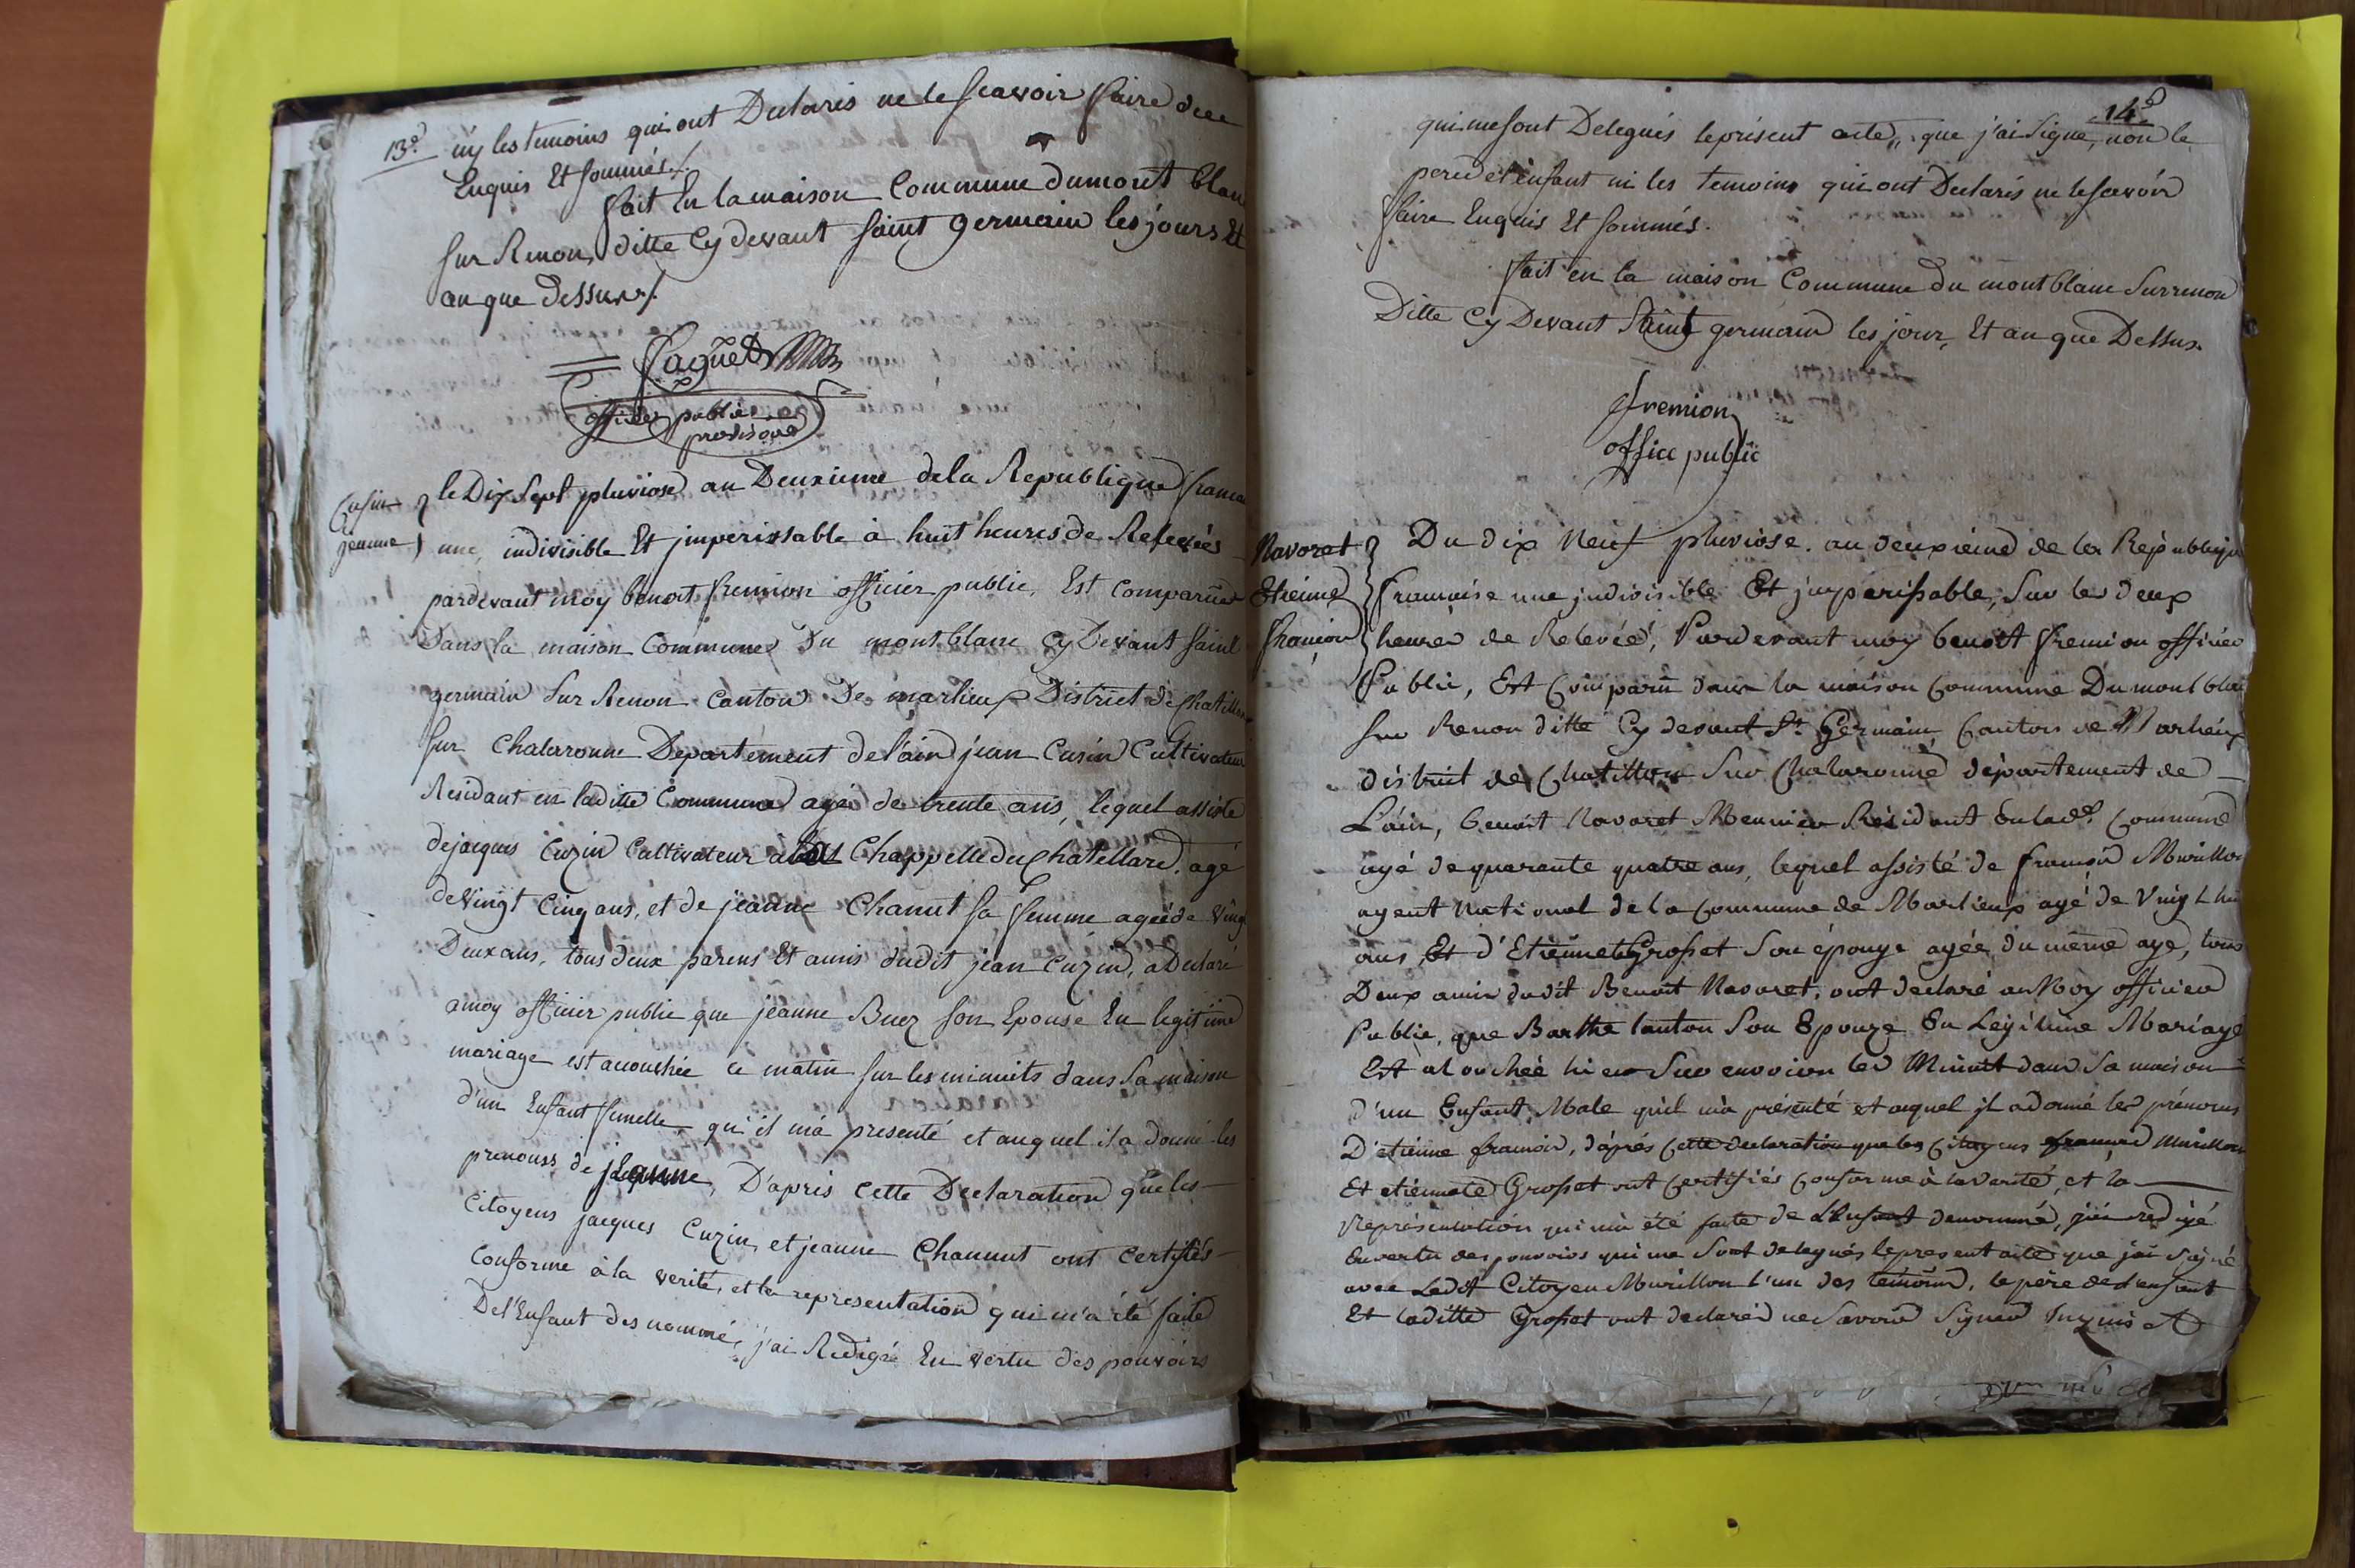 13e.
ny les temoins qui ont Declarés ne le scavoir faire de ce
Enquis Et sommés /.
fait En la maison Commune du mont blanc
sur Renon, ditte Cy devant saint germain les jours Et
an que dessus /.
Paguet
officier public
provisoire
Cusin
jeanne
le Dix Sept pluviose an Deuxieme de la Republique francai
une, indivisible Et jmperissable à huit heures de Relevées
pardevant moy benoit fremion officier public, Est comparue
Dans la maison Commune Du mont blanc Cy Devant saint
germain Sur Renon Canton De marlieux District de Chatillon
sur Chalaronne Departement de l'ain jean Cusin Cultivateur
Residant en laditte Commune agé de trente ans, lequel assisté
de jacques Cuzin Cultivateur a la Chappelle du Chatellard, agé
de vingt Cinq ans, et de jeanne Chanut sa femme agée de vingt
Deux ans, tous deux parens Et amis dudit jean Cuzin, a Declaré
a moy officier public que jeanne Buez son Epouse En legitime
mariage est acouchée ce matin sur les minuits dans Sa maison
d'un Enfant femelle qu'il m'a presenté et auquel il a donné les
prenoms de jeanne, D'apris Cette Declaration que les
Citoyens jacques Cuzin, et jeanne Chanut ont certifiés
Conforme à la verité, et la representation qui m'a été faite
De l'Enfant des nommé, j'ai Redigré En vertu des pouvoirs
14e.
qui me sont Delegués le présent acte, que j'ai Signe, non le
pere de l'enfant ni les temoins qui ont Declarés ne le scavoir
faire Enquis Et sommés.
fait en la maison Commune du mont blanc Sur renon
Ditte Cy Devant Saint germain les jour, Et an que Dessus.
fremion
office public
Navoret
Etienne
francois
Du dix Neuf pluviose. an deuxieme de la Republique
francaise une jndivisible Et jmperissable, Sur les deux
heures de Relevée, Pardevant moy benoit fremion officier
Public, Est Comparu dans la maison Commune Du mont blanc
sur Renon ditte Cy devant St. Germain, Canton de Marlieux
district de Chatillon Sur Chalaronne département de
L'ain, benoit Navoret Meunier Résidant En lade. Commune
agé de quarante quatre ans, lequel assisté de francois Murillon
agent National de la Commune de Marlieux agé de Vingt huit
ans Et d'Etiennete Grosset Son épouze agée du même age, tous
Deux amis dudit Benoit Navoret, ont declaré a Moy officier
Public, que Barthe lanton Son Epouze En Légitime Mariage
Est acouchée hier Sur environ les Minuit dans Sa maison
d'un Enfant Male qu'il m'a présenté et auquel jl a donné les prénoms
D'etienne francois, d'après Cette declaration que les Citoyens francois Murillon
Et etiennete Grosset ont Certifiés Conforme à la verité, et la
Représentation qui m'a été faite de L'Enfant denommé, j'ai redigé
En vertu des pouvoirs qui me Sont delegués le present acte que j'ai Signé
avec Ledit Citoyen Murillon l'un des temoins, le père de l'enfant
Et laditte Grosset ont declaré ne Savoir Signer Enquis Et